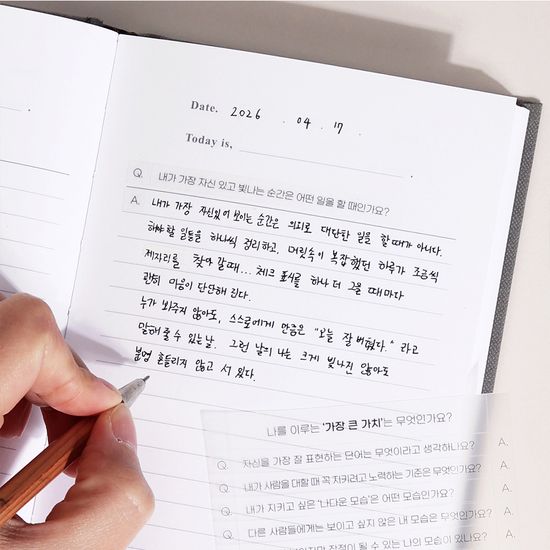 Date. 2026 . 04 . 17 .
Today is,
Q. 내가 가장 자신 있고 빛나는 순간은 어떤 일을 할 때인가요?
A. 내가 가장 자신있어 보이는 순간은 의외로 대단한 일을 할 때가 아니다.
해야 할 일들을 하나씩 정리하고, 머릿속이 복잡했던 하루가 조금씩
제자리를 찾아 갈 때... 체크 표시를 하나 더 그을 때마다
괜히 마음이 단단해 진다.
누가 봐주지 않아도, 스스로에게 만큼은 "오늘 잘 버텼다." 라고
말해줄 수 있는 날. 그런 날의 나는 크게 빛나진 않아도
분명 흔들리지 않고 서 있다.
나를 이루는 '가장 큰 가치'는 무엇인가요?
Q. 자신을 가장 잘 표현하는 단어는 무엇이라고 생각하나요? A.
Q. 내가 사람을 대할 때 꼭 지키려고 노력하는 기준은 무엇인가요? A.
Q. 내가 지키고 싶은 '나다운 모습'은 어떤 모습인가요? A.
Q. 다른 사람들에게는 보이고 싶지 않은 내 모습은 무엇인가요? A.
장점이 될 수 있는 나의 모습이 있나요? A.